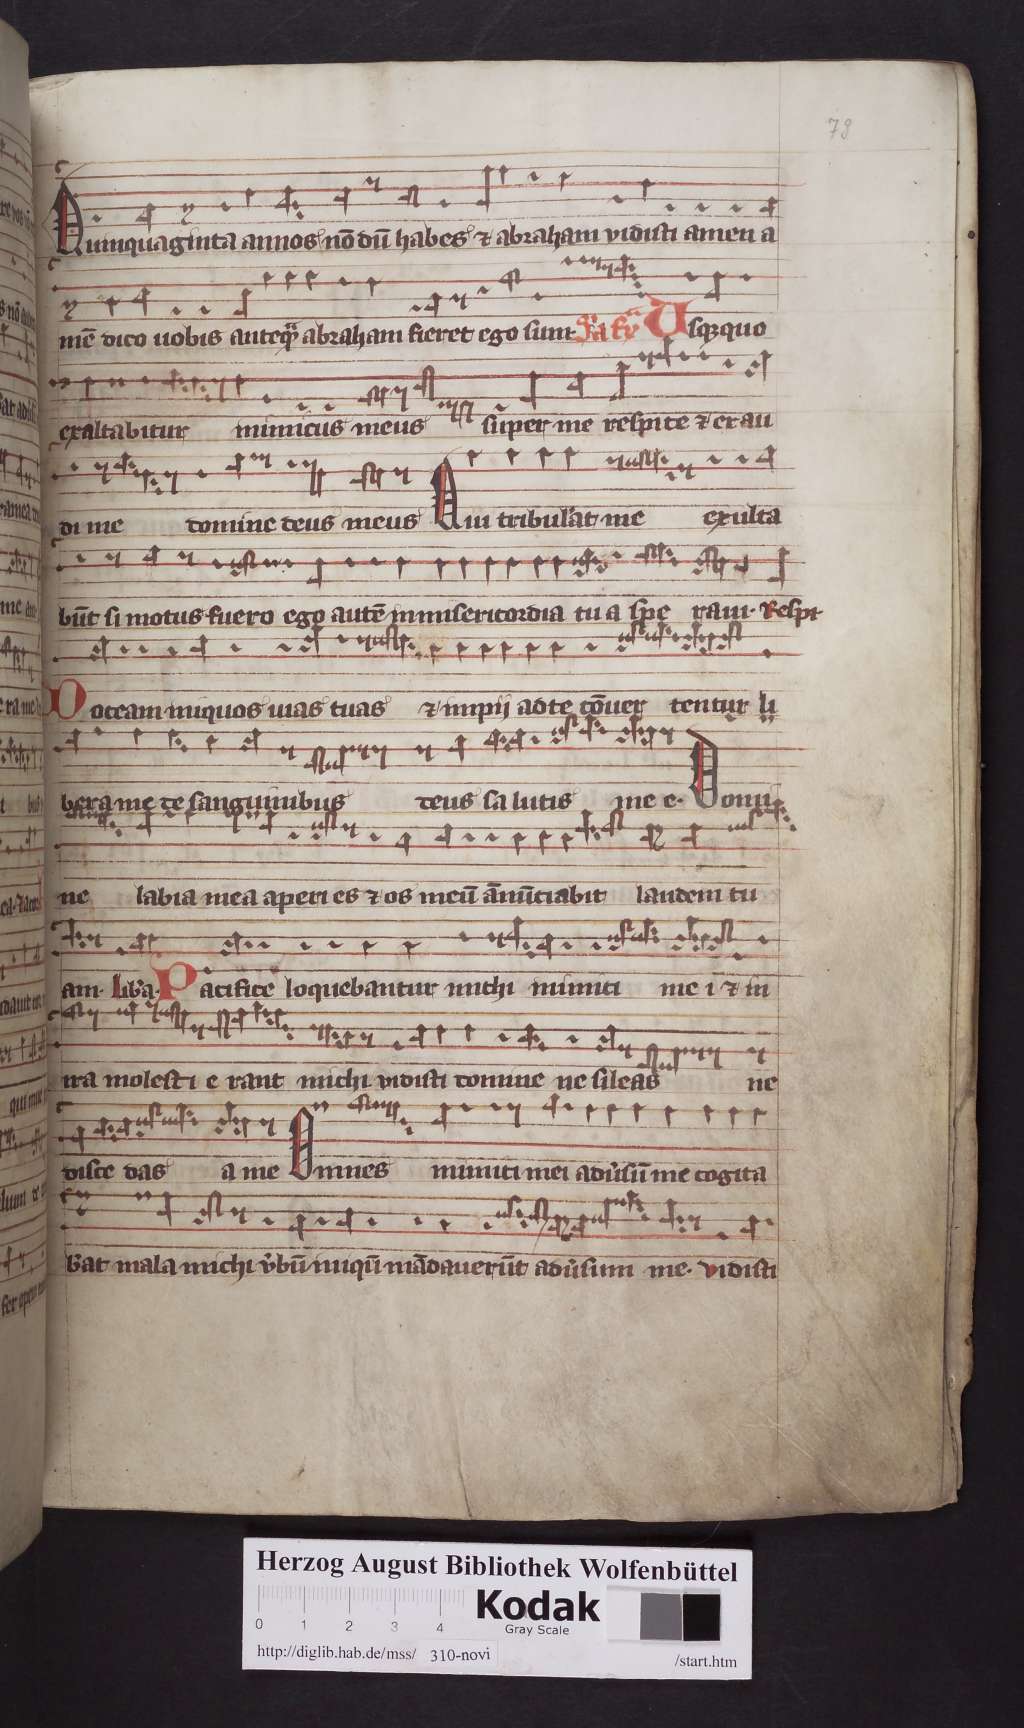 78
Quinquaginta annos nō dū habes ⁊ abraham vidisti amen a
mē dico uobis anteqͣ abraham fieret ego sum Usqꝫquo
exaltabitur inimicus meus super me respice ⁊ exau
di me domine deus meus Qui tribulāt me exulta
būt si motus fuero ego autē in misericordia tua spe raui. Respi
Doceam iniquos uias tuas ⁊ impij ad te cōuer tentur li
bera me de sanguinibus deus salutis me e. Domi
ne labia mea aperi es ⁊ os meū ānūtiabit laudem tu
am. Liba. Pacifice loquebantur michi inimici me i ⁊ in
ira molesti e rant michi vidisti domine ne sileas ne
disce das a me Omnes inimici mei adūsū me cogita
bāt mala michi v̄bū iniqū mādauerūt adūsum me. vidisti
Herzog August Bibliothek Wolfenbüttel
0 1 2 3 4
Kodak
Gray Scale
http://diglib.hab.de/mss/ 310-novi /start.htm